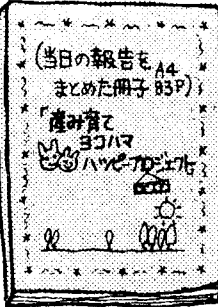 (当日の報告を
まとめた冊子 A4 83P)
「産み育て
ヨコハマ
ハッピープロジェクト